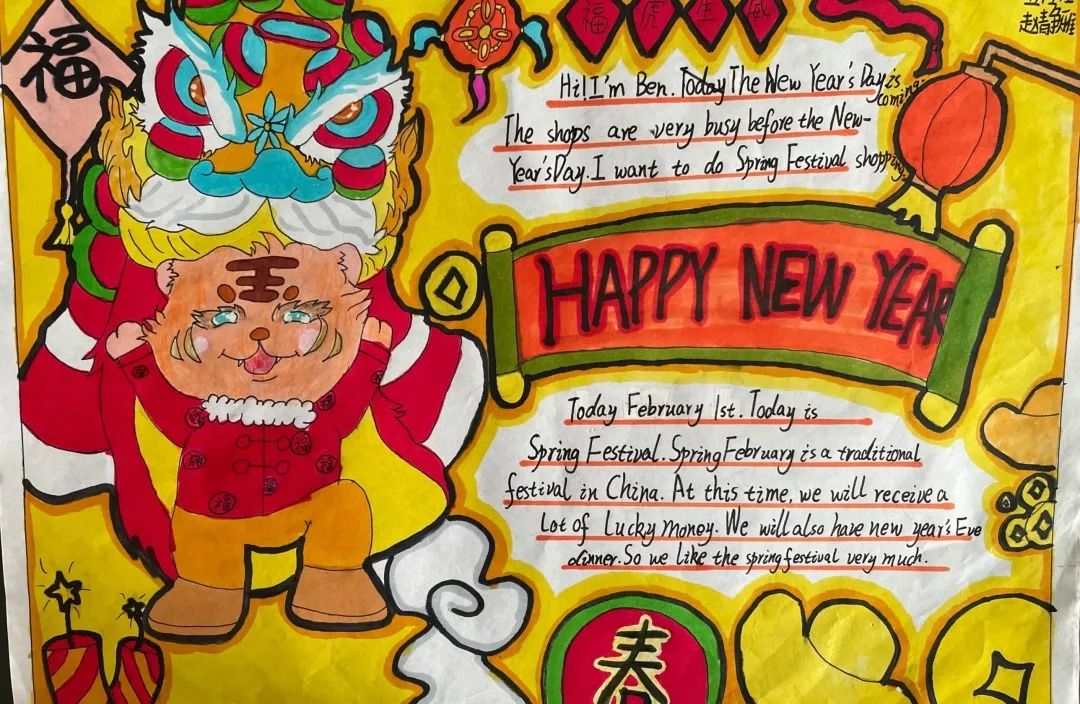 福
福 虎 生 威
赵靖雅
Hi! I'm Ben. Today The New Year's Day is coming.
The shops are very busy before the New-
Year's Day. I want to do Spring Festival shopping.
HAPPY NEW YEAR
王
Today February 1st. Today is
Spring Festival. Spring February is a traditional
festival in China. At this time, we will receive a
Lot of Lucky money. We will also have new year's Eve
dinner. So we like the spring festival very much.
福
春